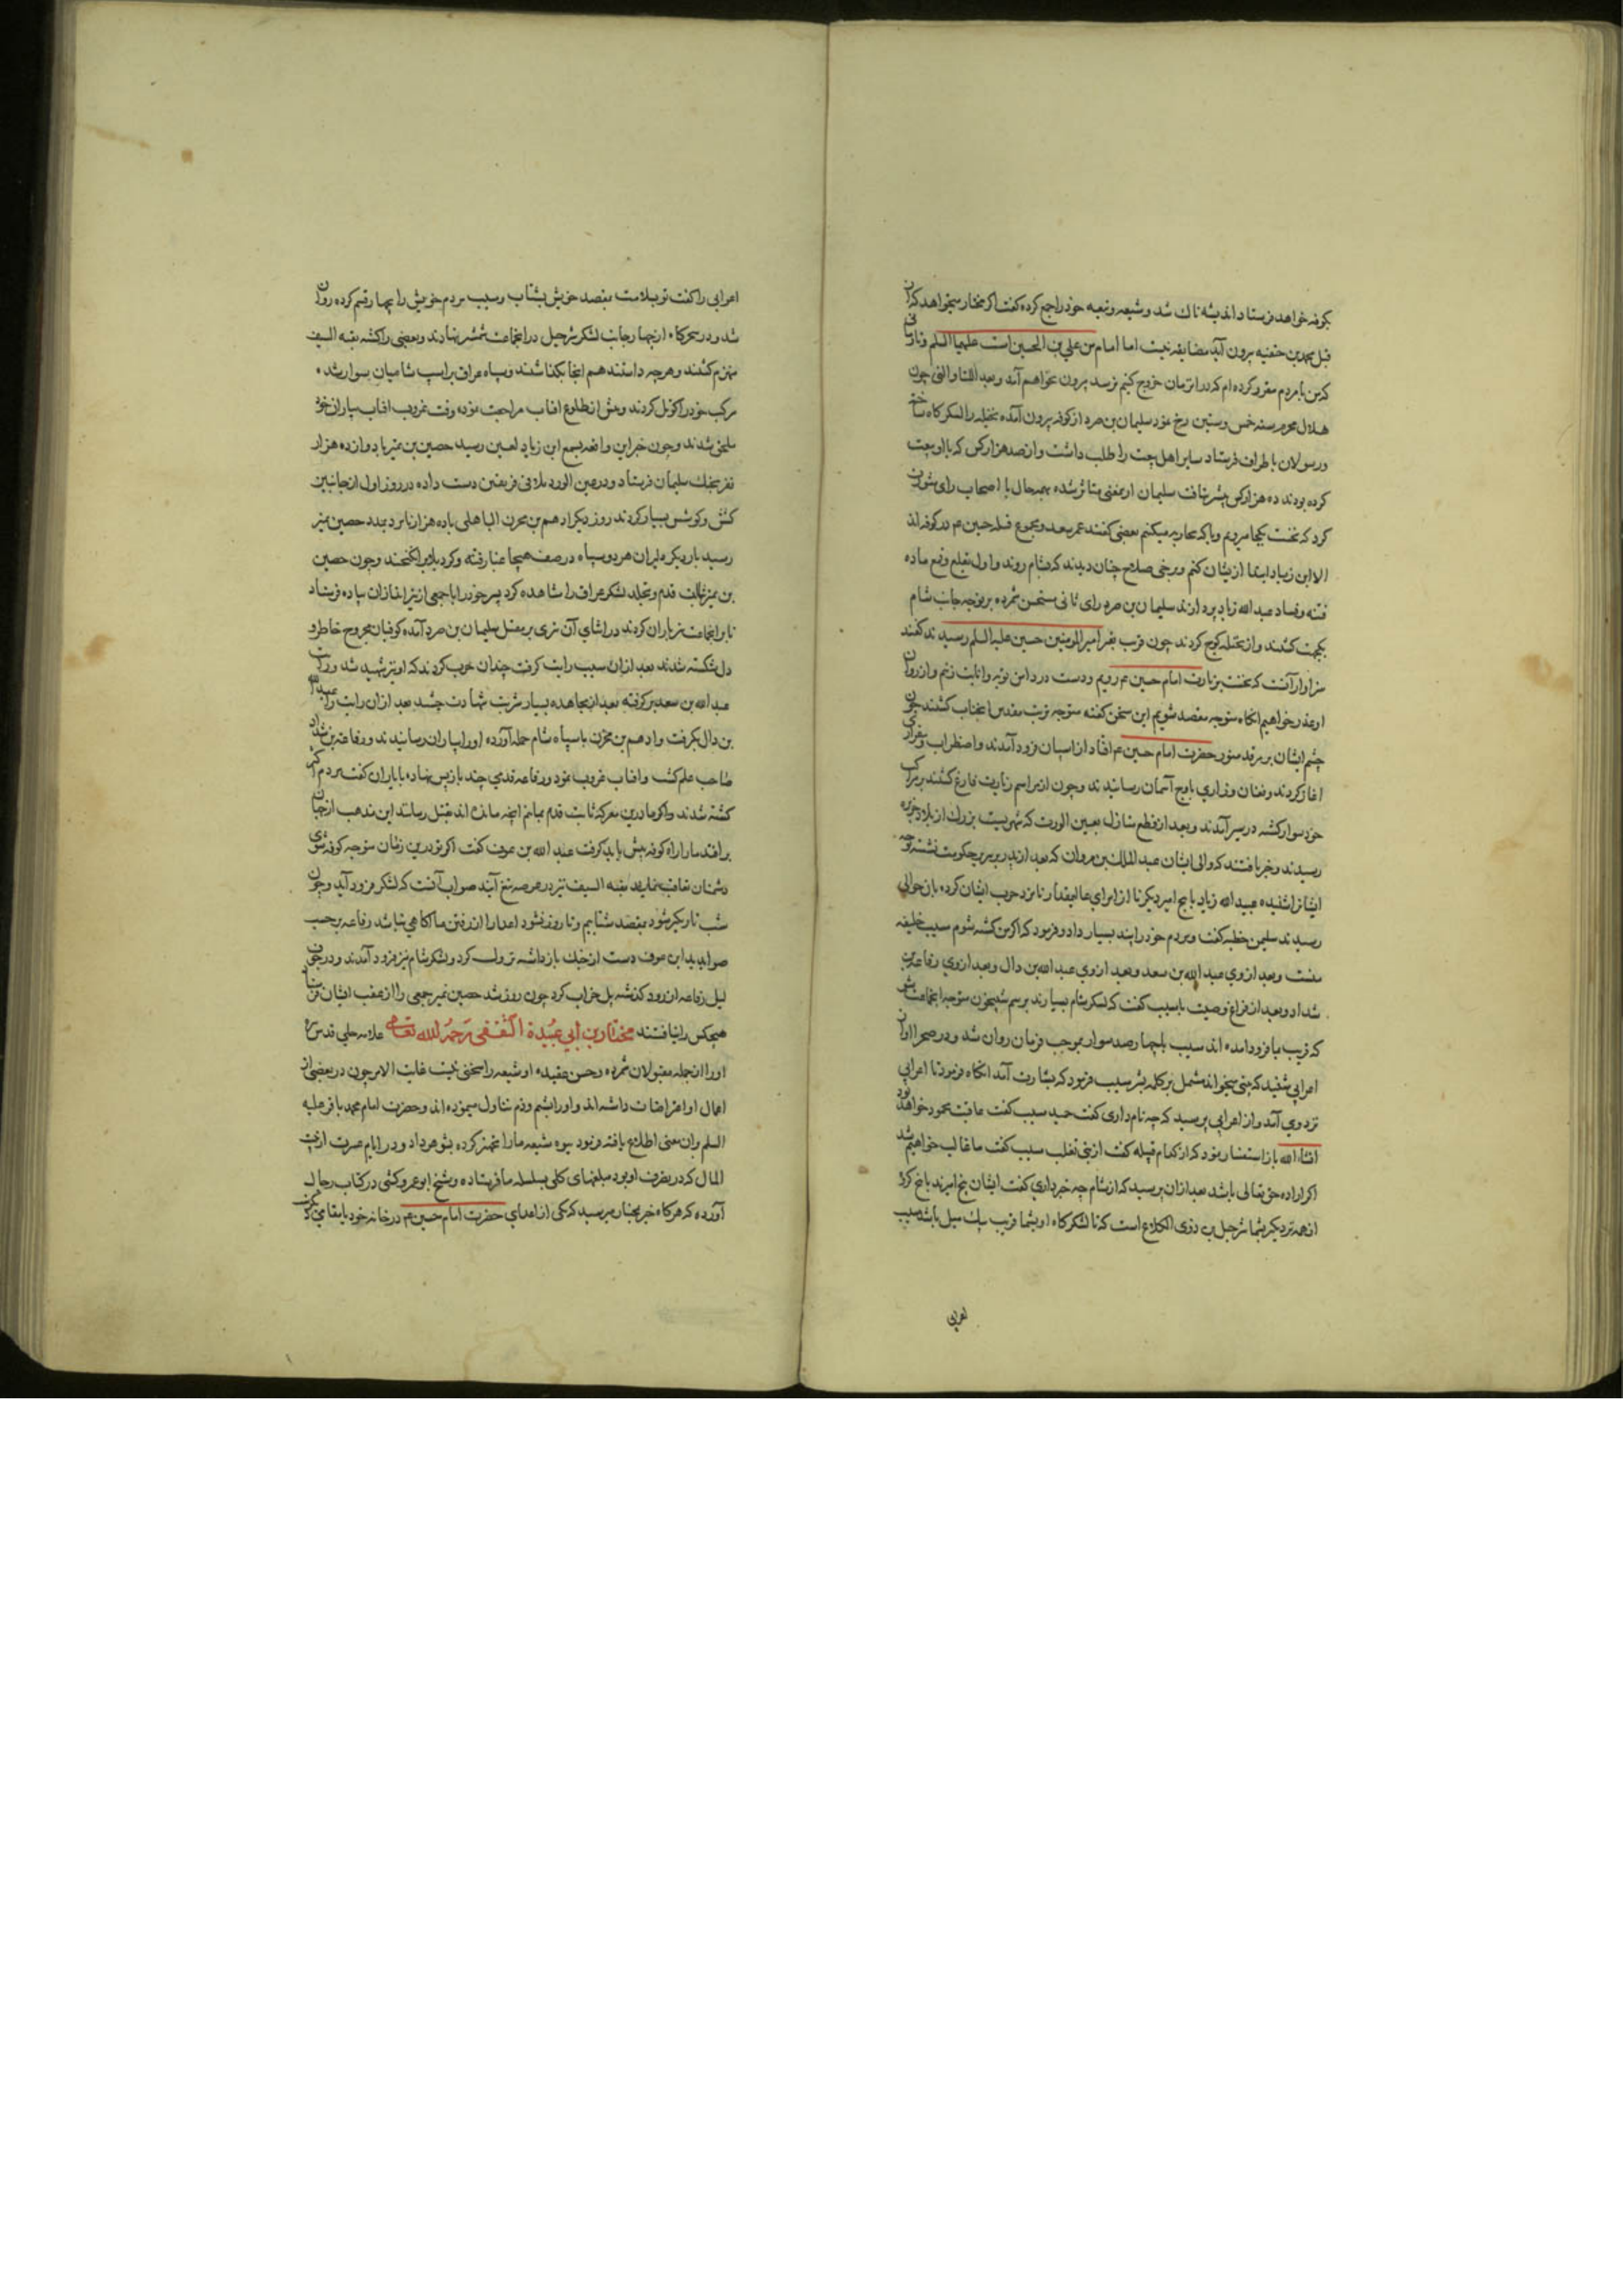 بکوفه خواهد فرستاد اندیشه ناک شد و شیعه و تبعه خود را جمع کرده گفت اگر مختار میخواهد که از
قبل محمد بن حنفیه بیرون آید مضایقه نیست اما امام من علی بن الحسین است علیهما السلم و تا زمانی
که من با مردم مقرر کرده‌ام که در ان زمان خروج کنیم نرسد بیرون نخواهم آمد و بعد اللتیا و التی چون
هلال محرم سنه خمس و ستین رخ نمود سلیمان بن صرد از کوفه بیرون آمده نخیله را لشکرگاه ساخت
و رسولان باطراف فرستاد سایر اهل بیعت را طلب داشت و از صد هزار کس که با او بیعت
کرده بودند ده هزار کس بیشر نیافت سلیمان ازینمعنی متاثر شده بهر حال با اصحاب رای مشورت
کرد که نخست بکجا رویم و با که محاربه میکنیم بعضی گفتند عمر سعد و مجموع قتله حسین ع در کوفه‌اند
الا ابن زیاد ابتدا ازیشان کنم و برخی صلاح چنان دیدند که بشام روند و اول بقلع و قمع ماده
فتنه و فساد عبد الله زیاد پردازند سلیمان بن صرد رای ثانی مستحسن شمرده بر توجه جانب شام
یکجهت گشتند و از نخیله کوچ کردند چون قریب بقبر امیر المومنین حسین علیه السلم رسیدند گفتند
سزاوار آنست که نخست بزیارت امام حسین ع رویم و دست در دامن توبه و انابت زنیم و از روان
او عذر خواهیم انگاه متوجه مقصد شویم این سخن گفته متوجه تربت مقدس انجناب گشتند چون
چشم ایشان بر مرقد منور حضرت امام حسین ع افتاد از اسپان فرود آمدند و اضطراب و بیقراری
اغاز کردند و فغان و زاری باوج آسمان رسانیدند و چون از مراسم زیارت فارغ گشتند بر مراکب
خود سوار گشته در سیر آمدند و بعد از قطع منازل بعین الورت که شهریست بزرک از بلاد جزیره
رسیدند و خبر یافتند که والی ایشان عبد الملک بن مروان که بعد از پدر بر سریر حکومت نشسته توجه
ایشانرا شنیده عبید الله زیاد با پنج امیر دیگر تا از امرای عالیمقدار نامزد حرب ایشان کرده بان حوالی
رسیدند سلیمن خطبه گفت و مردم خود را پند بسیار داد و فرمود که اگر من کشته شوم مسیب خلیفه
منست و بعد از وی عبد الله بن سعد و بعد از وی عبد الله بن دال و بعد از وی رفاعة بن
شداد و بعد از فراغ وصیت با مسیب گفت که لشکر شام بسیارند برسم شبیخون متوجه انجماعت شو
که قریب ما فرود امده اند مسیب با چهار صد سوار بموجب فرمان روان شد و در صحرا اواز
اعرابی شنید که بیتی میخواند مشتمل بر کلمه بشر مسیب فرمود که بشارت آمد انگاه فرمود تا اعرابی
نزد وی آمد و از اعرابی پرسید که چه نام داری گفت حمید مسیب گفت عاقبت محمود خواهد بود
انشاء الله باز استفسار نمود که از کدام قبیله گفت از بنی تغلب مسیب گفت ما غالب خواهیم شد
اگر اراده حق تعالی باشد بعد ازان پرسید که از شام چه خبر داری گفت ایشان پنج امیرند با پنج گروه
از همه نزدیکتر بشما شرحبیل بن ذوی الکلاع است که تا لشکرگاه او بشما قریب یک میل باشد مسیب
اعرابی
اعرابی را گفت تو بسلامت بمقصد خویش بشتاب و مسیب مردم خویش را بچهار قسم کرده روان
شد و در سحرگاه از چهار جانب لشکر شرحبیل در انجماعت شمشیر نهادند و بعضی را کشته بقیه السیف
منهزم گشتند و هرچه داشتند هم انجا بگذاشتند و سپاه عراق بر اسپ شامیان سوار شده
مرکب خود را کوتل کردند و پیش از طلوع افتاب مراجعت نموده وقت غروب افتاب بیاران خود
ملحق شدند و چون خبر این واقعه بسمع ابن زیاد لعین رسید حصین بن نمیر با دوازده هزار
نفر بجنک سلیمان فرستاد و در عین الورد تلاقی فریقین دست داده در روز اول از جانبین
کشش و کوشش بسیار کردند روز دیگر ادهم بن محرز الباهلی با ده هزار نامرد بمدد حصین نمیر
رسید بار دیگر دلیران هر دو سپاه در صف هیجا عنا رفته و گرد بلا بر انگیختند و چون حصین
بن نمیر ثبات قدم و تجلد لشکر عراق را مشاهده کرد پسر خود را با جمعی از تیر اندازان پیاده فرستاد
تا بر انجماعت تیر باران کردند در اثنای آن تیری بر مقتل سلیمان بن صرد آمده کوفیان مجروح خاطر و
دل شکسته شدند بعد ازان مسیب رایت گرفت چندان حرب کردند که او نیز شهید شد و رایت
عبد الله بن سعد بر گرفته بعد از مجاهده بسیار شربت شهادت چشید بعد ازان رایت را عبد الله
بن دال بگرفت و ادهم بن محرز با سپاه شام حمله آورده او را بیاران رسانیدند و رفاعه بن شداد
صاحب علم گشت و افتاب غروب نمود و رفاعه قدمی چند باز پس نهاده با یاران گفت مردم گزین
کشته شدند و اگر ما درین معرکه ثابت قدم بمانیم انچه مانده اند بقتل رسانند این مذهب از جهان
بر افتد ما را راه کوفه پیش باید گرفت عبد الله بن عوف گفت اگر تو درین زمان متوجه کوفه شوی
دشمنان تعاقب نمایند بقیه السیف نیز در عرصه تیغ آیند صواب آنست که لشکر فرود آید و چون
شب تاریکتر شود بمقصد شتابیم و تا روز نشود اعدا را از رفتن ما اگاهی نباشد رفاعه بر حسب
صوابدید ابن عوف دست از جنک باز داشته نزول کرد و لشکر شام نیز فرود آمدند و در جوف
لیل رفاعه از رود گذشته پل خراب کرد چون روز شد حصین نمیر جمعی را از عقب ایشان فرستاد
هیچکس را نیافتند مختار بن ابی عبیدة الثقفی رحمه الله تعالی علامه حلی قدس سره
او را از جمله مقبولان شمرده و حسن عقیده او شیعه را سخنی نیست غایت الامر چون در بعضی از
اعمال او اعتراضات داشته اند و او را بشتم و ذم تناول مینموده اند و حضرت امام محمد باقر علیه
السلم بران معنی اطلاع یافته فرمود بیوه شیعه ما را تجهیز کرده بشوهر داد و در ایام عسرت از بیت
المال که در تصرف او بود مبلغهای کلی بسلسله ما فرستاده و شیخ ابو عمرو کشی در کتاب رجال
آورده که هر گاه خبر بمختار میرسید که یکی از اعدای حضرت امام حسین ع در خانه خود یا مقامی دیگر